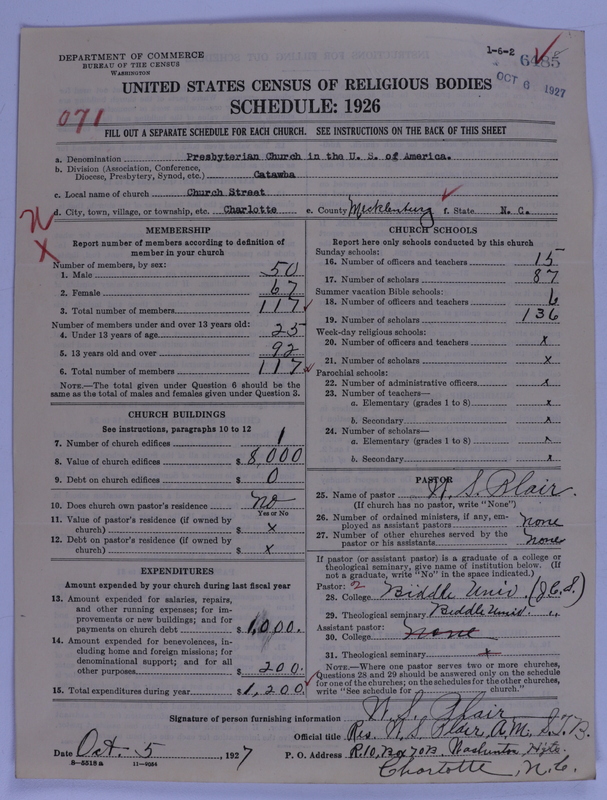 DEPARTMENT OF COMMERCE
BUREAU OF THE CENSUS
WASHINGTON
1-6-2
6485
OCT 6 1927
UNITED STATES CENSUS OF RELIGIOUS BODIES
SCHEDULE: 1926
071
FILL OUT A SEPARATE SCHEDULE FOR EACH CHURCH. SEE INSTRUCTIONS ON THE BACK OF THIS SHEET
a. Denomination Presbyterian Church in the U. S. of America.
b. Division (Association, Conference,
Diocese, Presbytery, Synod, etc.) Catawba
c. Local name of church Church Street
d. City, town, village, or township, etc. Charlotte e. County Mecklenburg f. State N. C.
N
X
MEMBERSHIP
Report number of members according to definition of
member in your church
Number of members, by sex:
1. Male 50
2. Female 67
3. Total number of members 117
Number of members under and over 13 years old:
4. Under 13 years of age 25
5. 13 years old and over 92
6. Total number of members 117
NOTE.—The total given under Question 6 should be the
same as the total of males and females given under Question 3.
CHURCH BUILDINGS
See instructions, paragraphs 10 to 12
7. Number of church edifices 1
8. Value of church edifices $ 8,000
9. Debt on church edifices $ 0
10. Does church own pastor's residence no
Yes or No
11. Value of pastor's residence (if owned by
church) $ x
12. Debt on pastor's residence (if owned by
church) $ x
EXPENDITURES
Amount expended by your church during last fiscal year
13. Amount expended for salaries, repairs,
and other running expenses; for im-
provements or new buildings; and for
payments on church debt $ 1,000.
14. Amount expended for benevolences, in-
cluding home and foreign missions; for
denominational support; and for all
other purposes $ 200.
15. Total expenditures during year $ 1,200.
CHURCH SCHOOLS
Report here only schools conducted by this church
Sunday schools:
16. Number of officers and teachers 15
17. Number of scholars 87
Summer vacation Bible schools:
18. Number of officers and teachers 6
19. Number of scholars 136
Week-day religious schools:
20. Number of officers and teachers x
21. Number of scholars x
Parochial schools:
22. Number of administrative officers x
23. Number of teachers—
a. Elementary (grades 1 to 8) x
b. Secondary x
24. Number of scholars—
a. Elementary (grades 1 to 8) x
b. Secondary x
PASTOR
25. Name of pastor W. S. Blair.
(If church has no pastor, write "None")
26. Number of ordained ministers, if any, em-
ployed as assistant pastors none
27. Number of other churches served by the
pastor or his assistants none
If pastor (or assistant pastor) is a graduate of a college or
theological seminary, give name of institution below. (If
not a graduate, write "No" in the space indicated.)
Pastor: 2
28. College Biddle Univ (J.C.S.)
29. Theological seminary Biddle Univ ,,
Assistant pastor:
30. College none
31. Theological seminary x
NOTE.—Where one pastor serves two or more churches,
Questions 28 and 29 should be answered only on the schedule
for one of the churches; on the schedules for the other churches,
write "See schedule for church."
Signature of person furnishing information W. S. Blair
Official title Rev. W. S. Blair, A.M., S.T.B.
Date Oct. 5, 1927 P. O. Address R.10, Box 70B. Washinton Hgts.
8-5518a 11-9054
Charlotte, N.C.